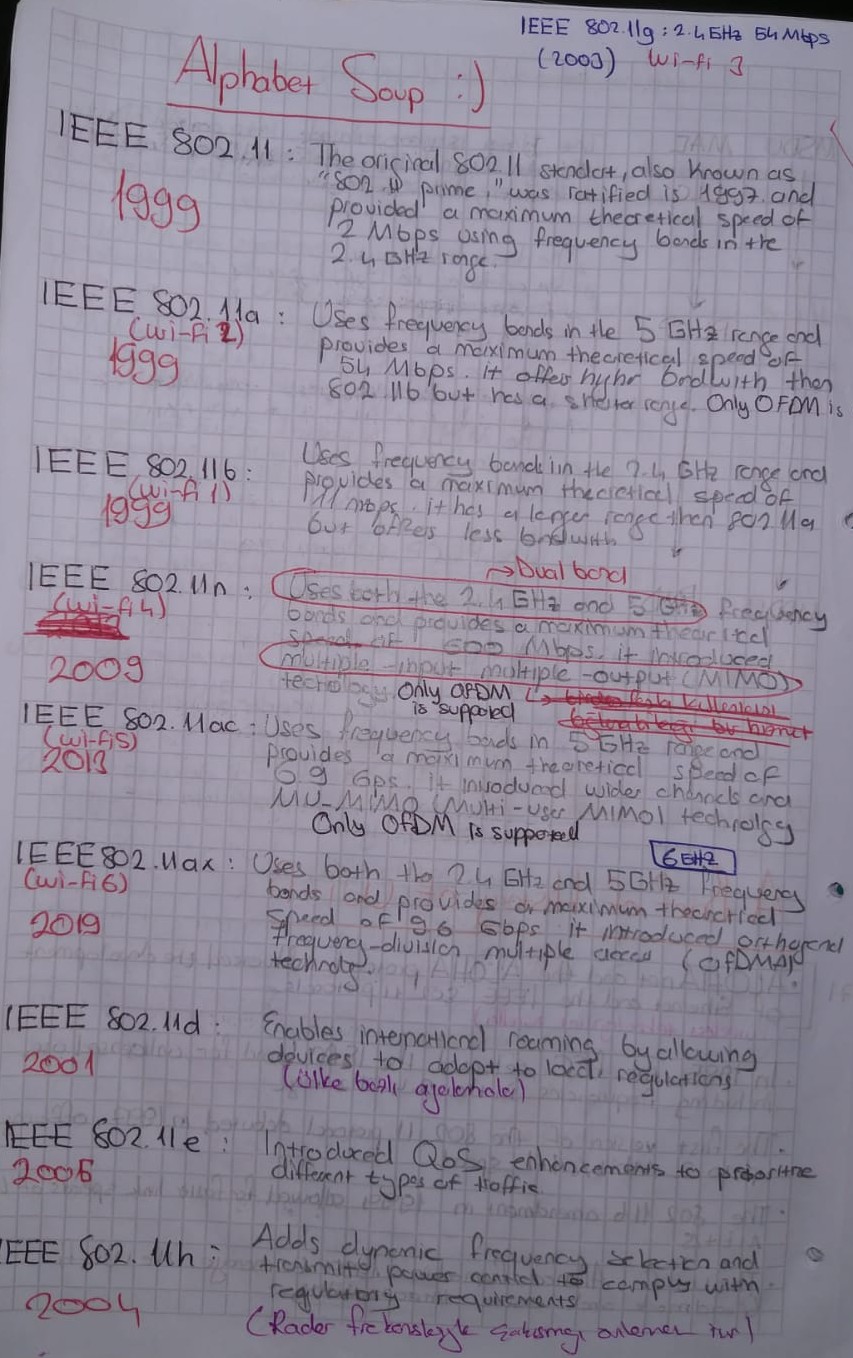 IEEE 802.11g : 2.4 GHz 54 Mbps
(2003) Wi-fi 3
Alphabet Soup :)
IEEE 802.11 : The original 802.11 standart, also known as
1999
"802.11 prime," was ratified is 1997 and
provided a maximum theoretical speed of
2 Mbps using frequency bands in the
2.4 GHz range.
IEEE 802.11a : Uses frequency bands in the 5 GHz range and
(wi-fi 2)
1999
provides a maximum theoretical speed of
54 Mbps. it offers bandwith then
802.11b but has a range. Only OFDM is
IEEE 802.11b : Uses frequency bands in the 2.4 GHz range and
(wi-fi 1)
1999
provides a maximum theoretical speed of
11 mbps. it has a larger range then 802.11a
but offers less bandwith
→ Dual band
IEEE 802.11n : Uses both the 2.4 GHz and 5 GHz frequency
(wi-fi 4)
2009
bands and provides a maximum theoritical
speed of 600 Mbps. it introduced
multiple-input multiple-output (MIMO)
technology Only OFDM
is supported
IEEE 802.11ac : Uses frequency bands in 5 GHz range and
(wi-fi 5)
2013
provides a maximum theoretical speed of
6.9 Gps. it introduced wider channels and
MU-MIMO (Multi-user MIMO) technology
Only OFDM is supported
6GHz
IEEE 802.11ax : Uses both the 2.4 GHz and 5GHz frequency
(wi-fi 6)
2019
bands and provides a maximum theoretical
speed of 9.6 Gbps it introduced orthogonal
frequency-division multiple access (OFDMA)
technology.
IEEE 802.11d : Enables international roaming by allowing
2001
devices to adapt to local regulations
(Ülke bazlı ayarlamalar)
IEEE 802.11e : Introduced QoS enhancements to
2005
different types of traffic
IEEE 802.11h : Adds dynamic frequency selection and
2004
transmit power control to comply with
regulatory requirements
(Radar